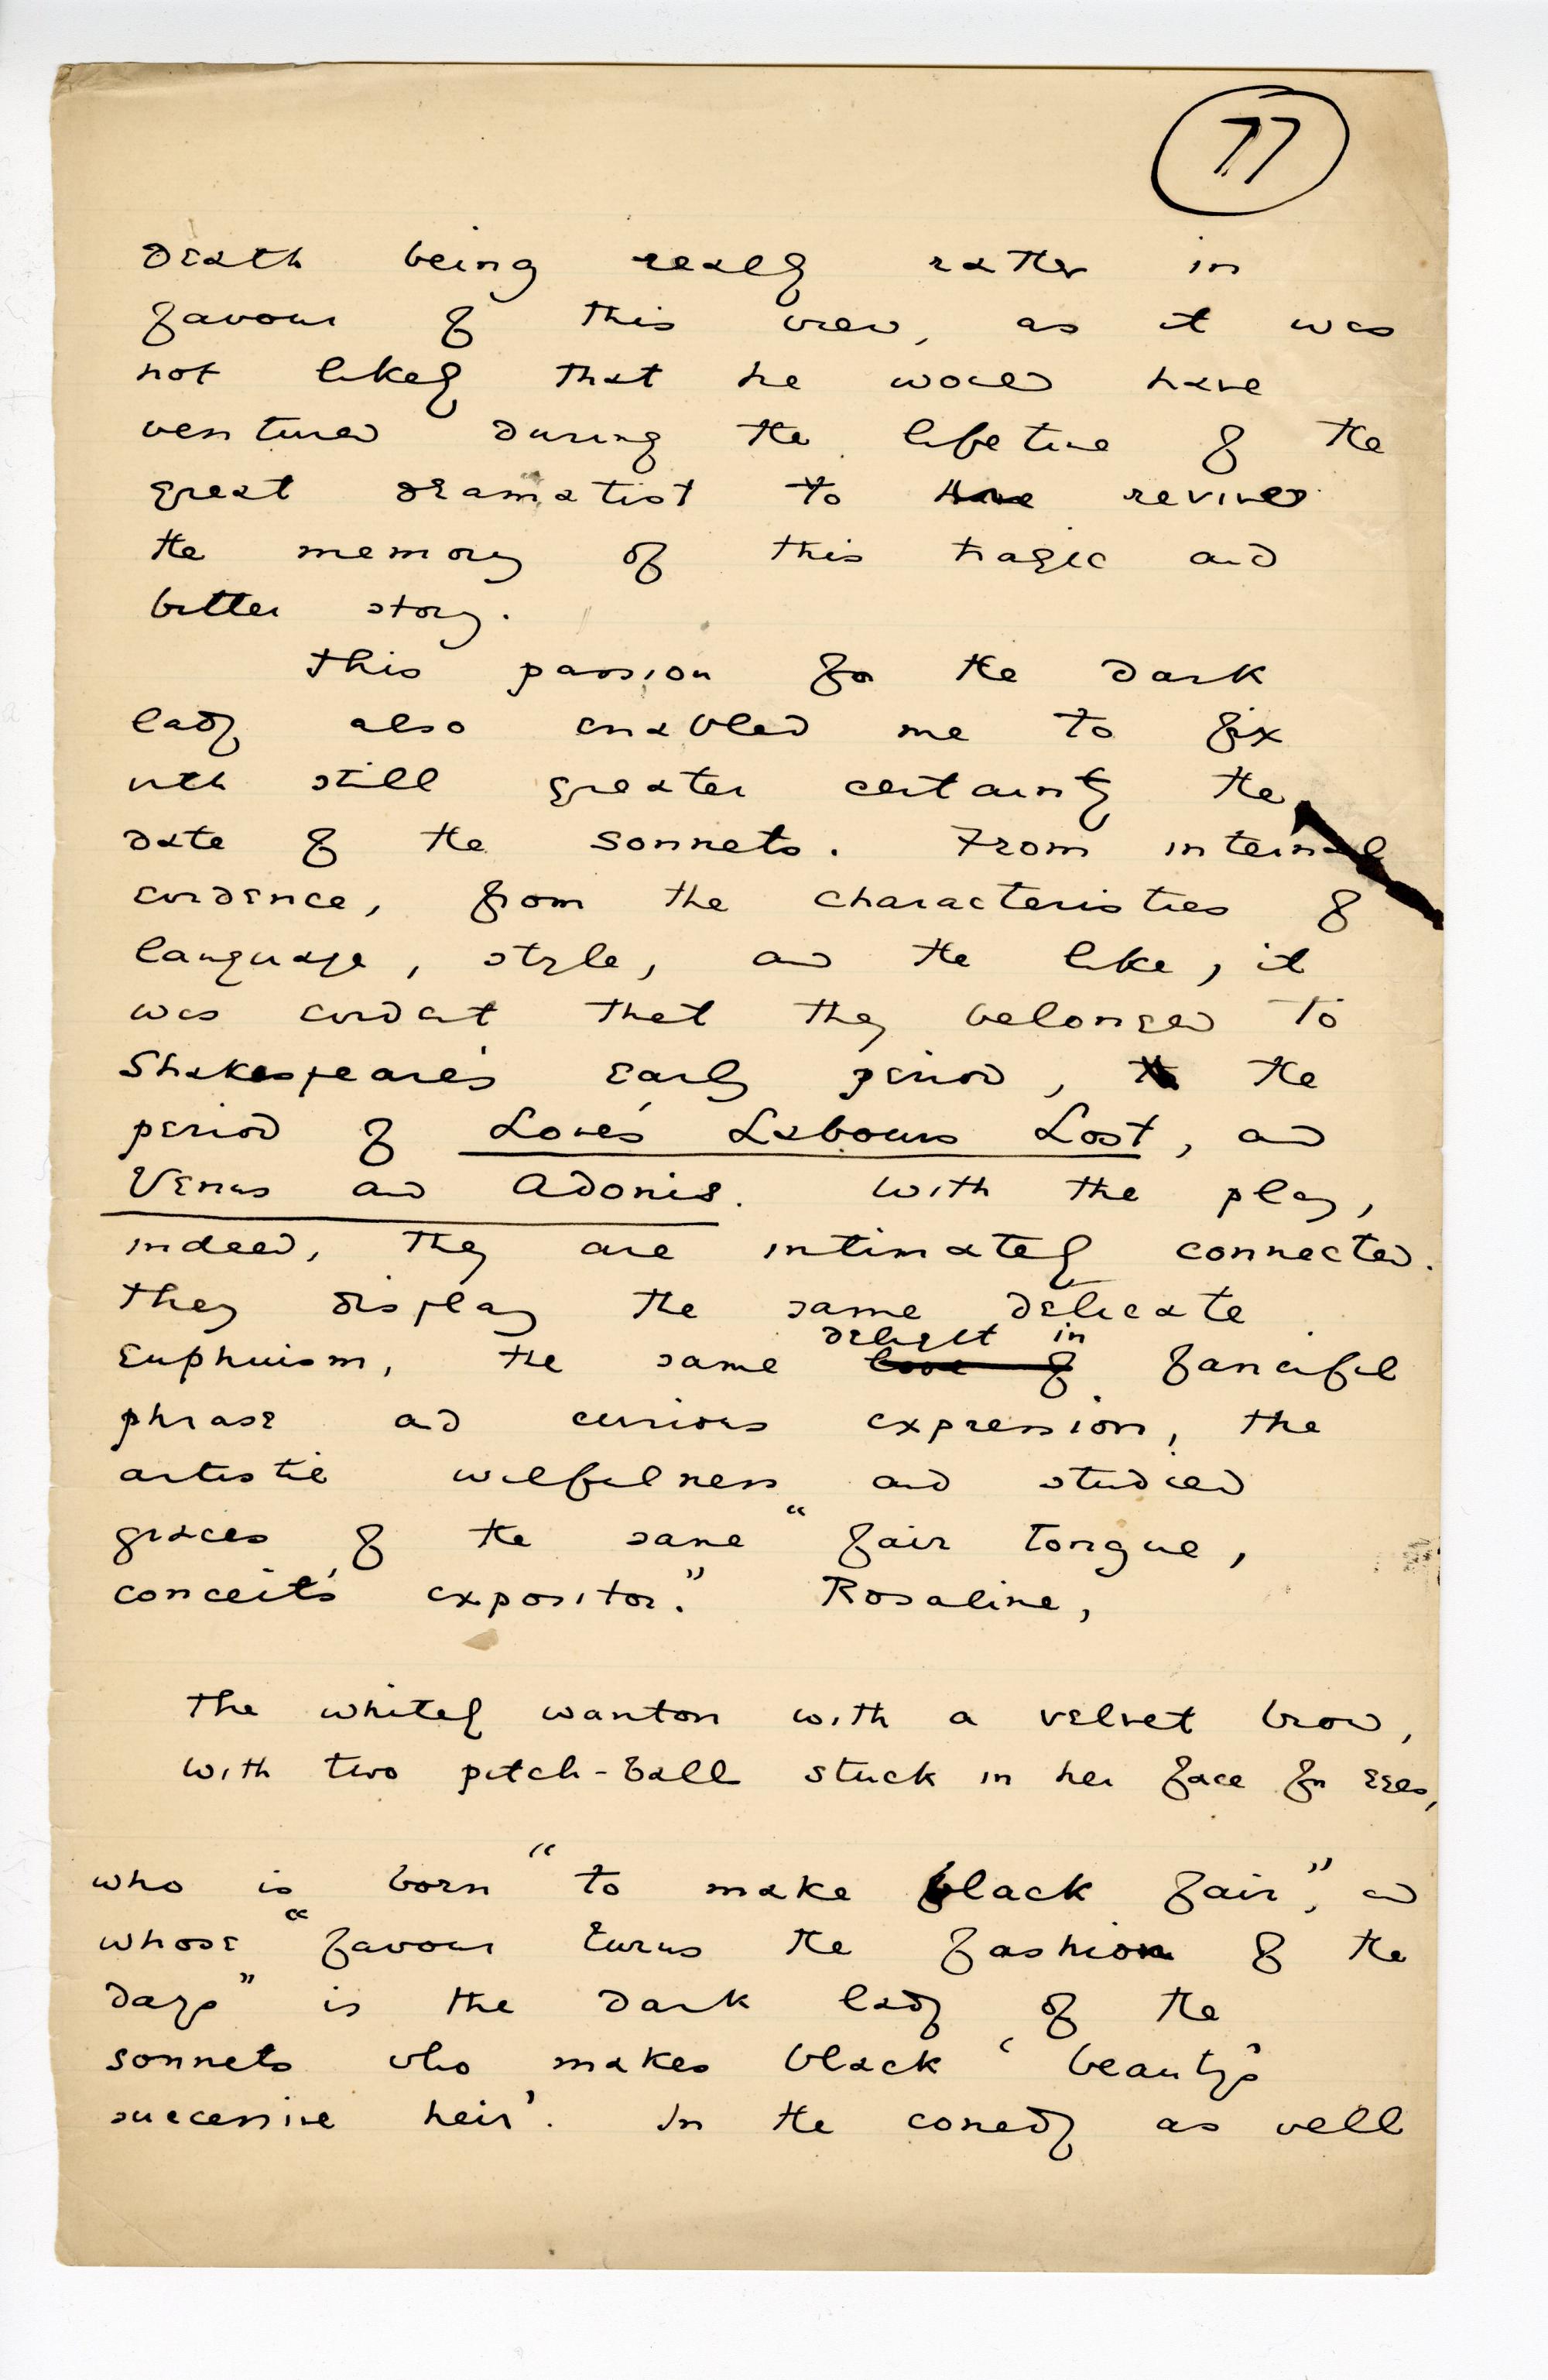 77
death being really rather in
favour of this view, as it was
not likely that he would have
ventured during the lifetime of the
great dramatist to have revived
the memory of this tragic and
bitter story.
This passion for the dark
lady also enabled me to fix
with still greater certainty the
date of the sonnets. From internal
evidence, from the characteristics of
language, style, and the like, it
was evident that they belonged to
Shakespeare's early period, the
period of Love's Labours Lost, and
Venus and Adonis. With the play,
indeed, they are intimately connected.
They display the same delicate
delight in
euphuism, the same love of fanciful
phrase and curious expression, the
artistic wilfulness and studied
graces of the same "fair tongue,
conceit's expositor." Rosaline,
the whitely wanton with a velvet brow,
with two pitch-ball stuck in her face for eyes,
who is born "to make black fair", and
whose "favour turns the fashion of the
days" is the dark lady of the
sonnets who makes black 'beauty's
successive heir'. In the comedy as well